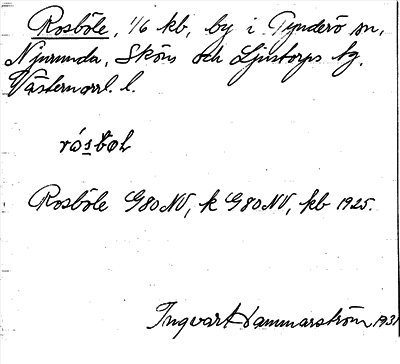 Rosböle, 1/6 kb, by i Tynderö sn,
Njurunda, Sköns och Ljustorps tg.
Västernorrl. l.
Rosböle G80NV, k G80NV, kb 1925.
Ingvar Hammarström 1931